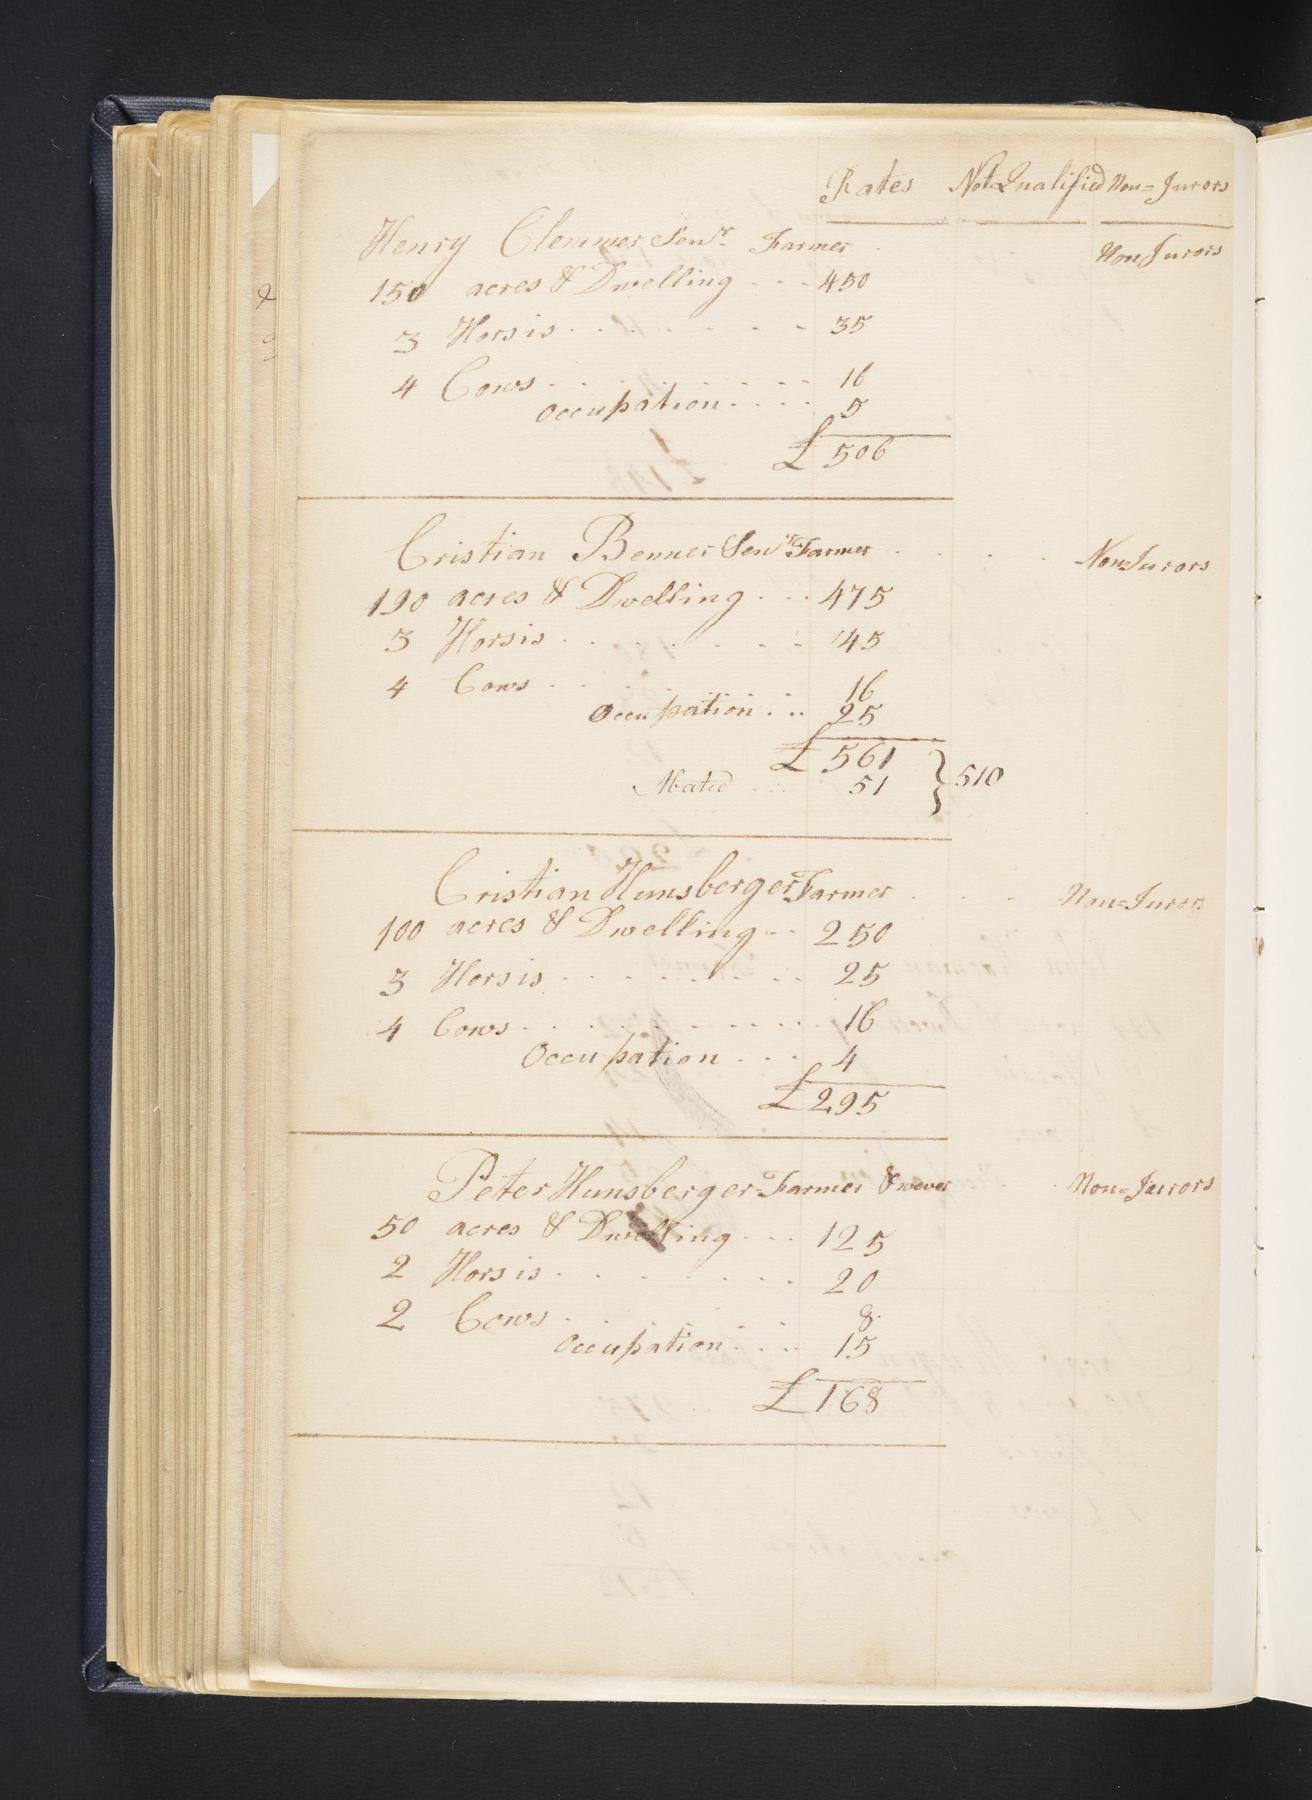 Rates Not Qualified Non=Jurors
Henry Clemmer Senr. Farmer Non Jurors
150 acres & Dwelling - - - 450
3 Horsis - - - - - 35
4 Cows - - - - - 16
Occupation - - - - 5
£ 506
Cristian Benner Senr Farmer - - - - Non=Jurors
190 acres & Dwelling - - - 475
3 Horsis - - - - - 45
4 Cows - - - - - 16
Occupation - - - 25
£ 561
Abated - - - 51 } 510
Cristian Hunsberger Farmer - - - Non=Jurors
100 acres & Dwelling - - 250
3 Horsis - - - - - 25
4 Cows - - - - - 16
Occupation - - - 4
£ 295
Peter Hunsberger Farmer & wever - - Non=Jurors
50 acres & Dwelling - - - 125
2 Horsis - - - - - 20
2 Cows - - - - - 8
Occupation - - - - 15
£ 168